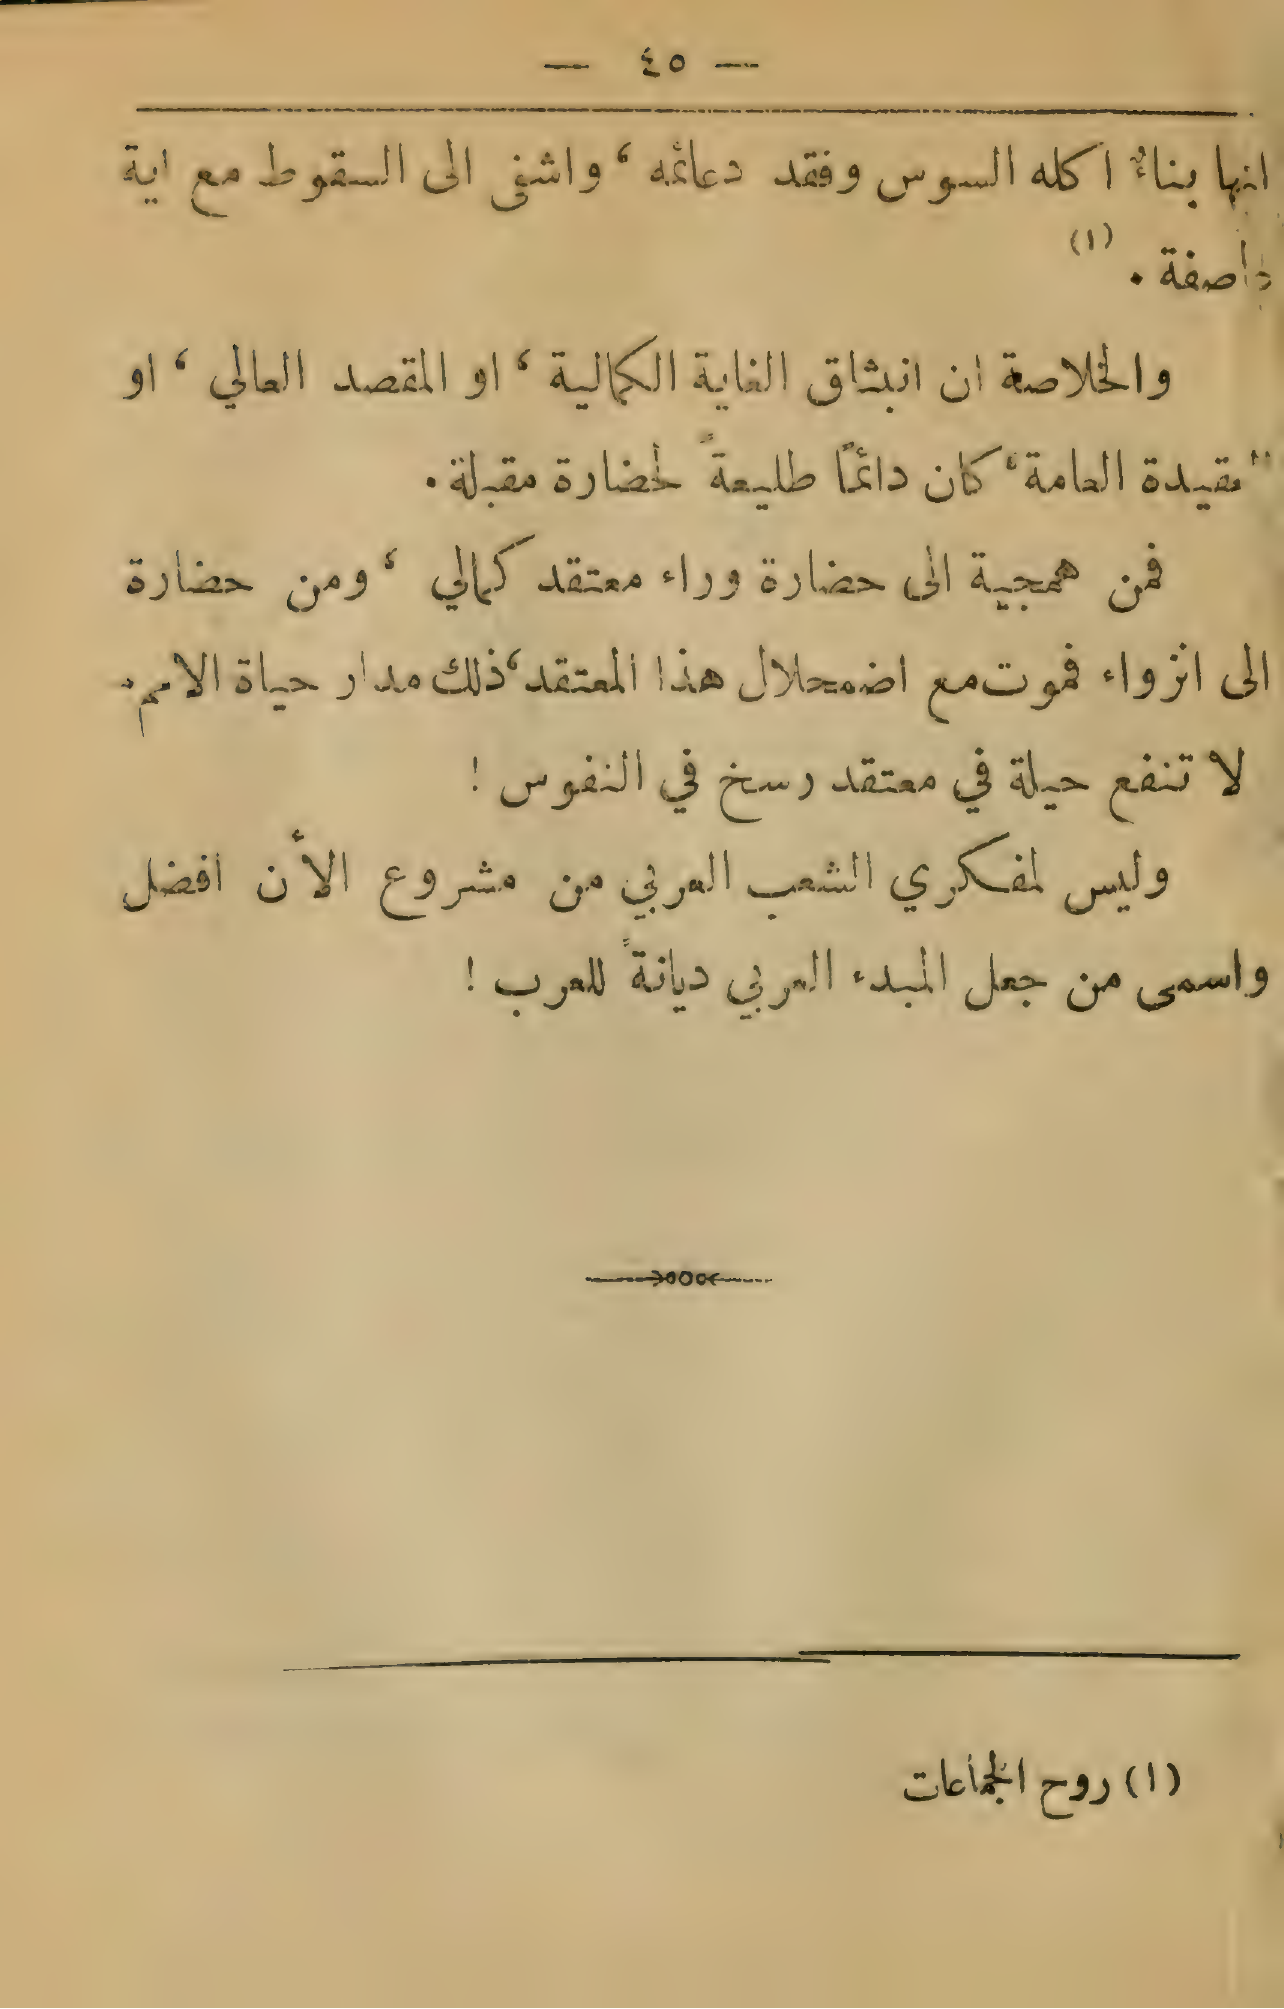 — ٤٥ —
انها بناءٌ اكله السوس وفقد دعائمه ، واشفى الى السقوط مع اية
عاصفة . (١)
والخلاصة ان انبثاق الغاية الكمالية ، او المقصد العالي ، او
العقيدة العامة، كان دائمًا طليعةً لحضارة مقبلة.
فمن همجية الى حضارة وراء معتقد كمالي ، ومن حضارة
الى انزواء فموت مع اضمحلال هذا المعتقد، ذلك مدار حياة الامم.
لا تنفع حيلة في معتقد رسخ في النفوس !
وليس لمفكري الشعب العربي من مشروع الأن افضل
واسمى من جعل المبدء العربي ديانةً للعرب !
(١) روح الجماعات